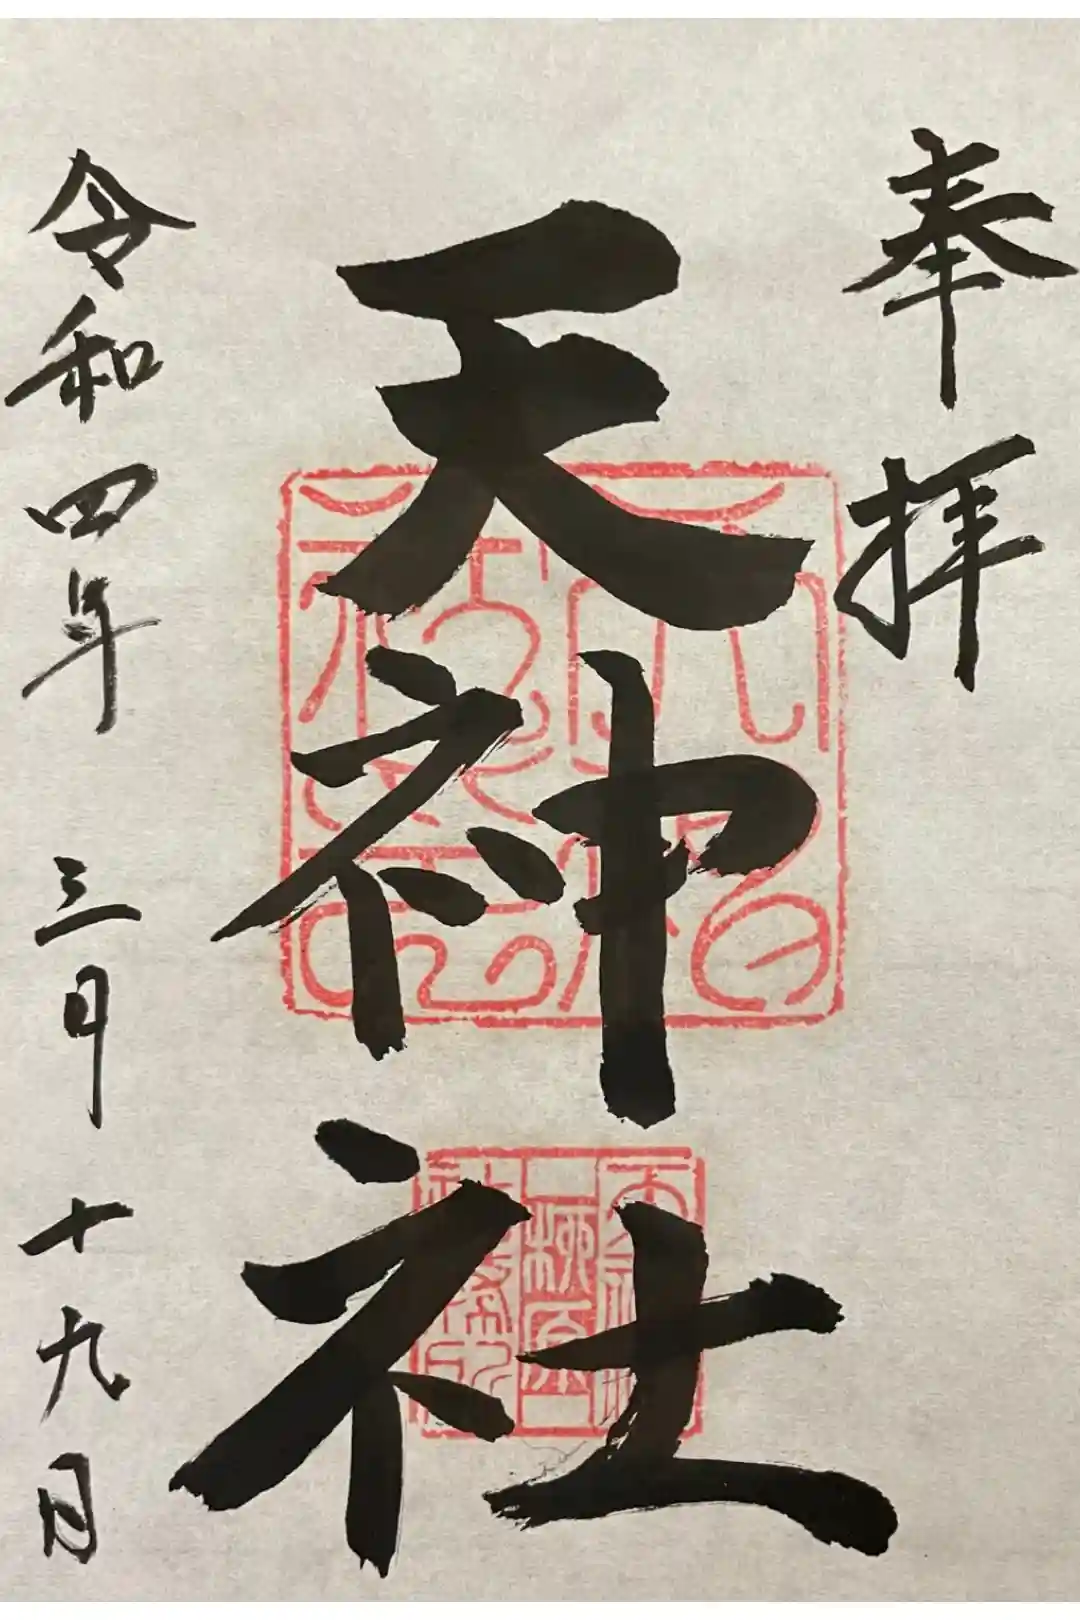 奉拝
天神社
令和四年 三月十九日